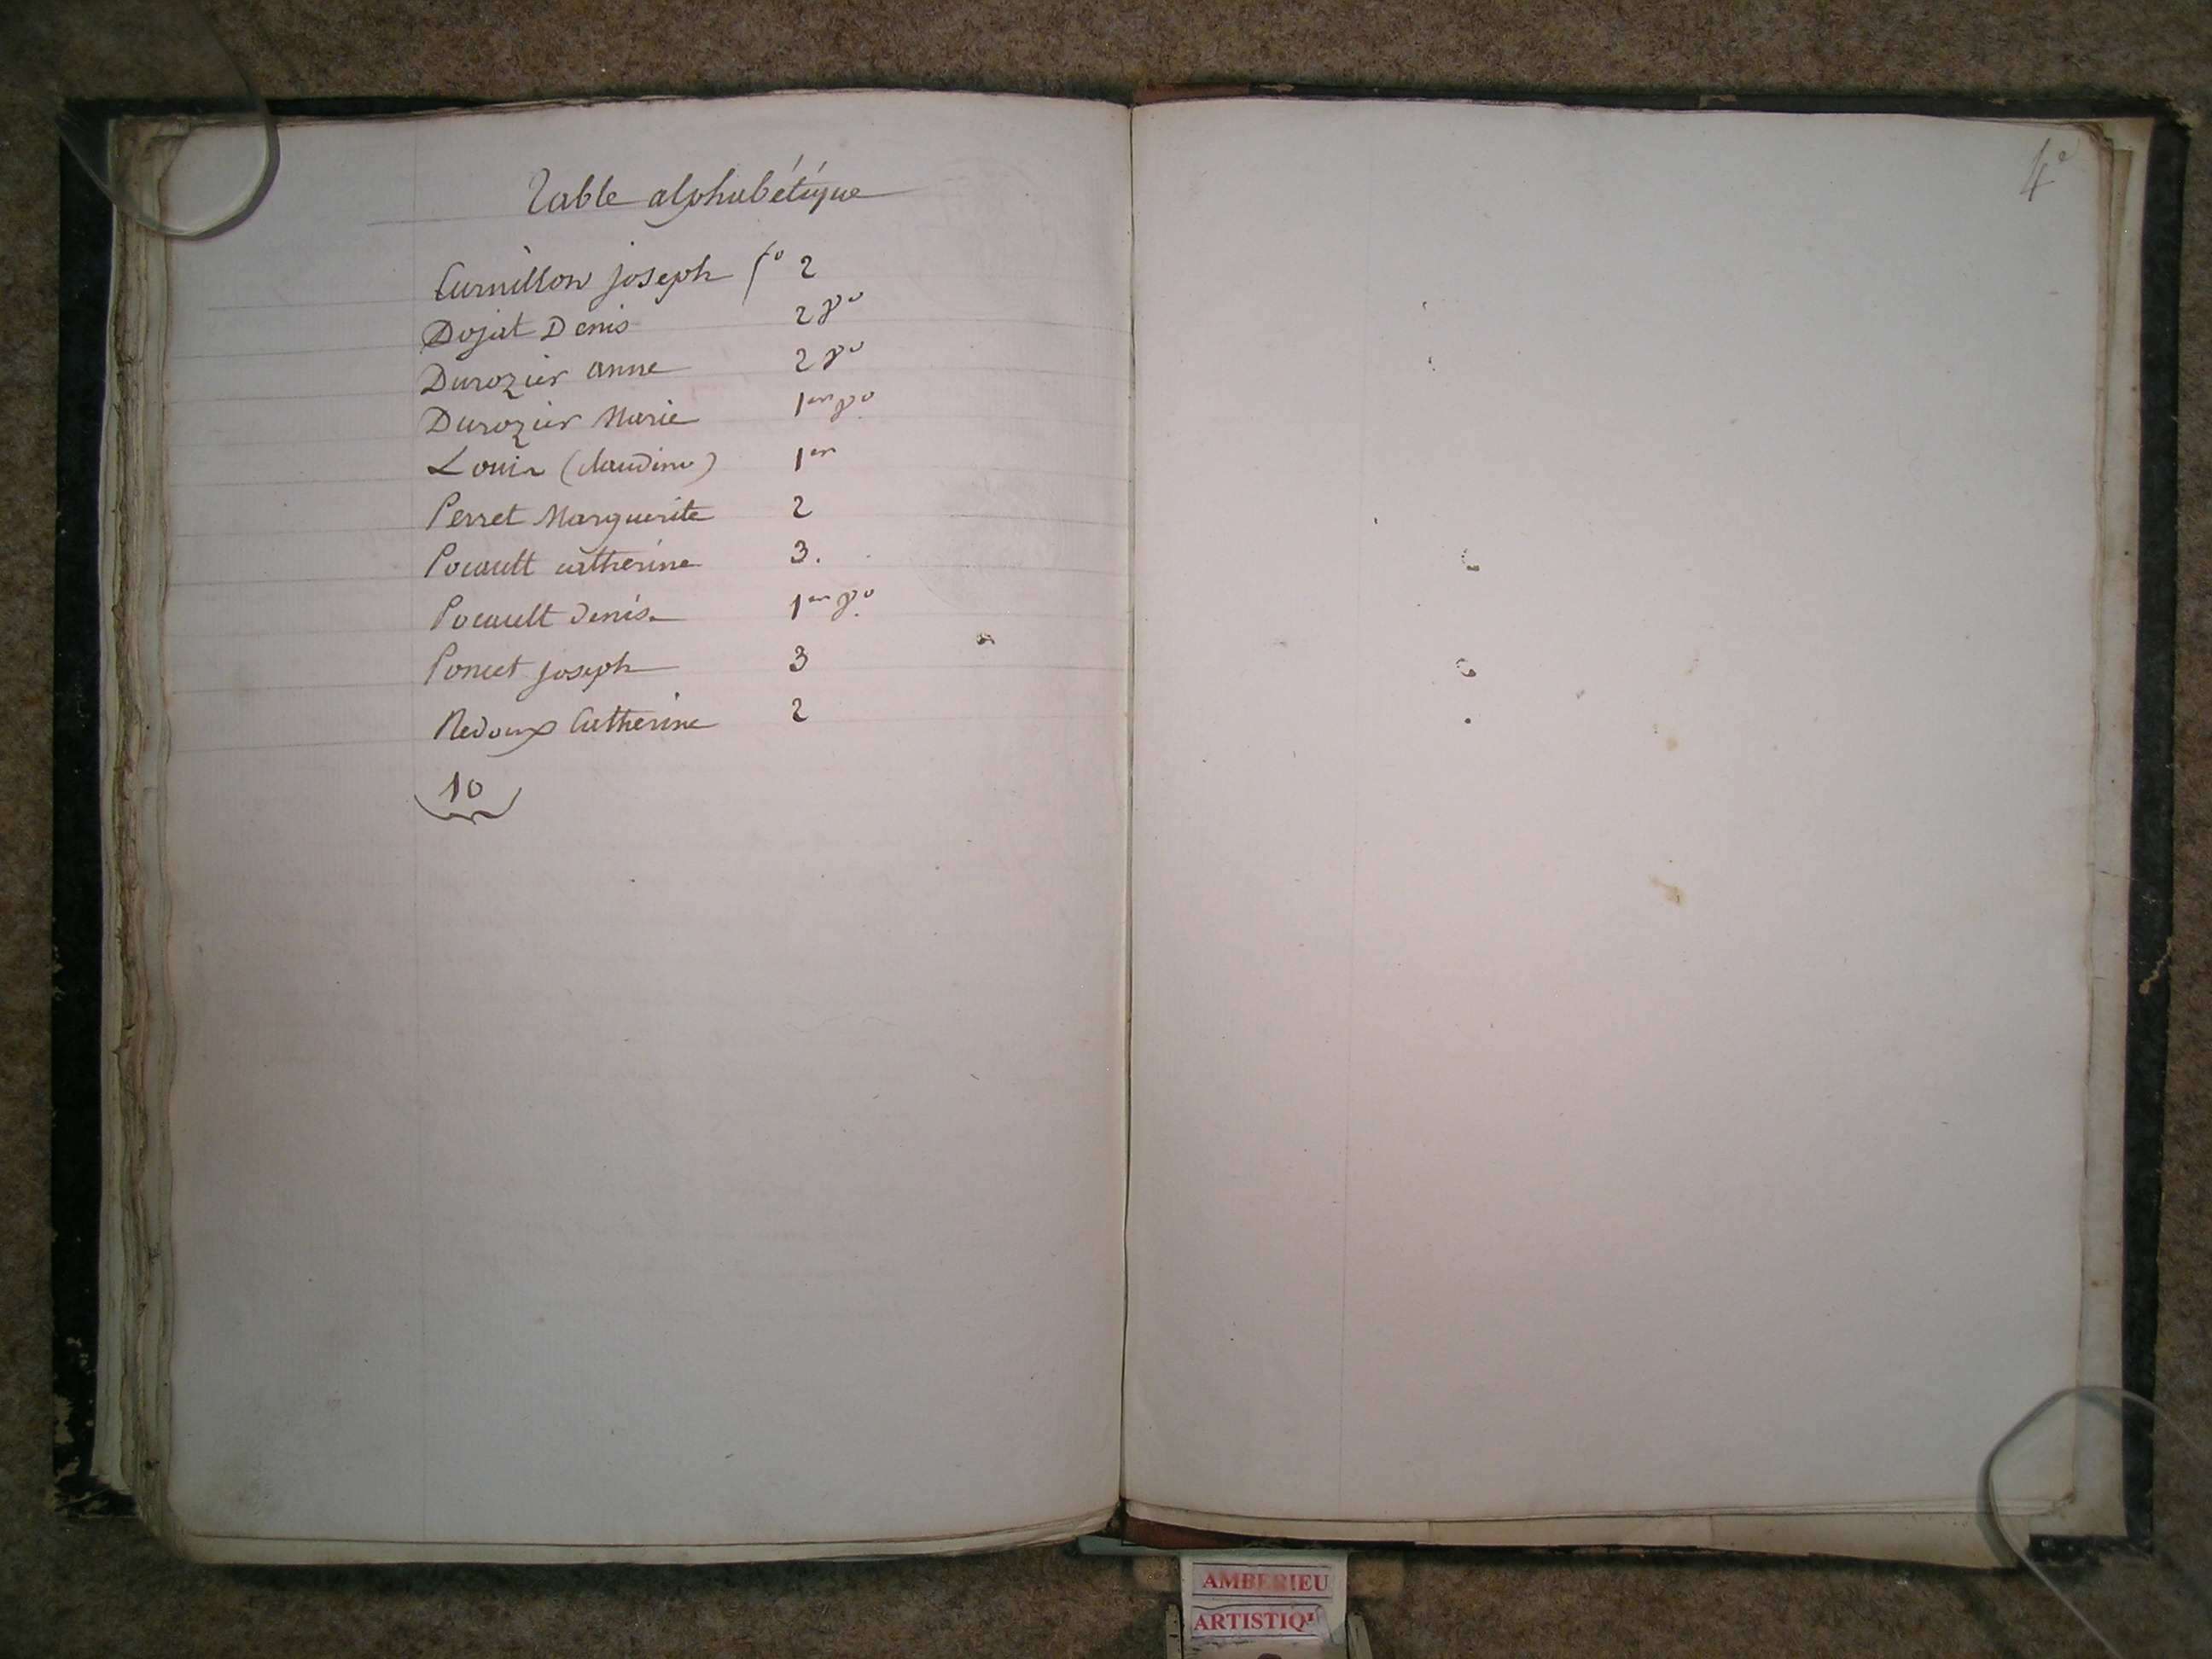 Table alphabétique
Curnillon joseph fo 2
Dojat Denis 2 vo
Durozier anne 2 vo
Durozier Marie 1er vo
Louis (claudine) 1er
Perret Marguerite 2
Pocault catherine 3.
Pocault Denis 1er vo
Poncet joseph 3
Redoux Catherine 2
10
4e
AMBERIEU
ARTISTIQ